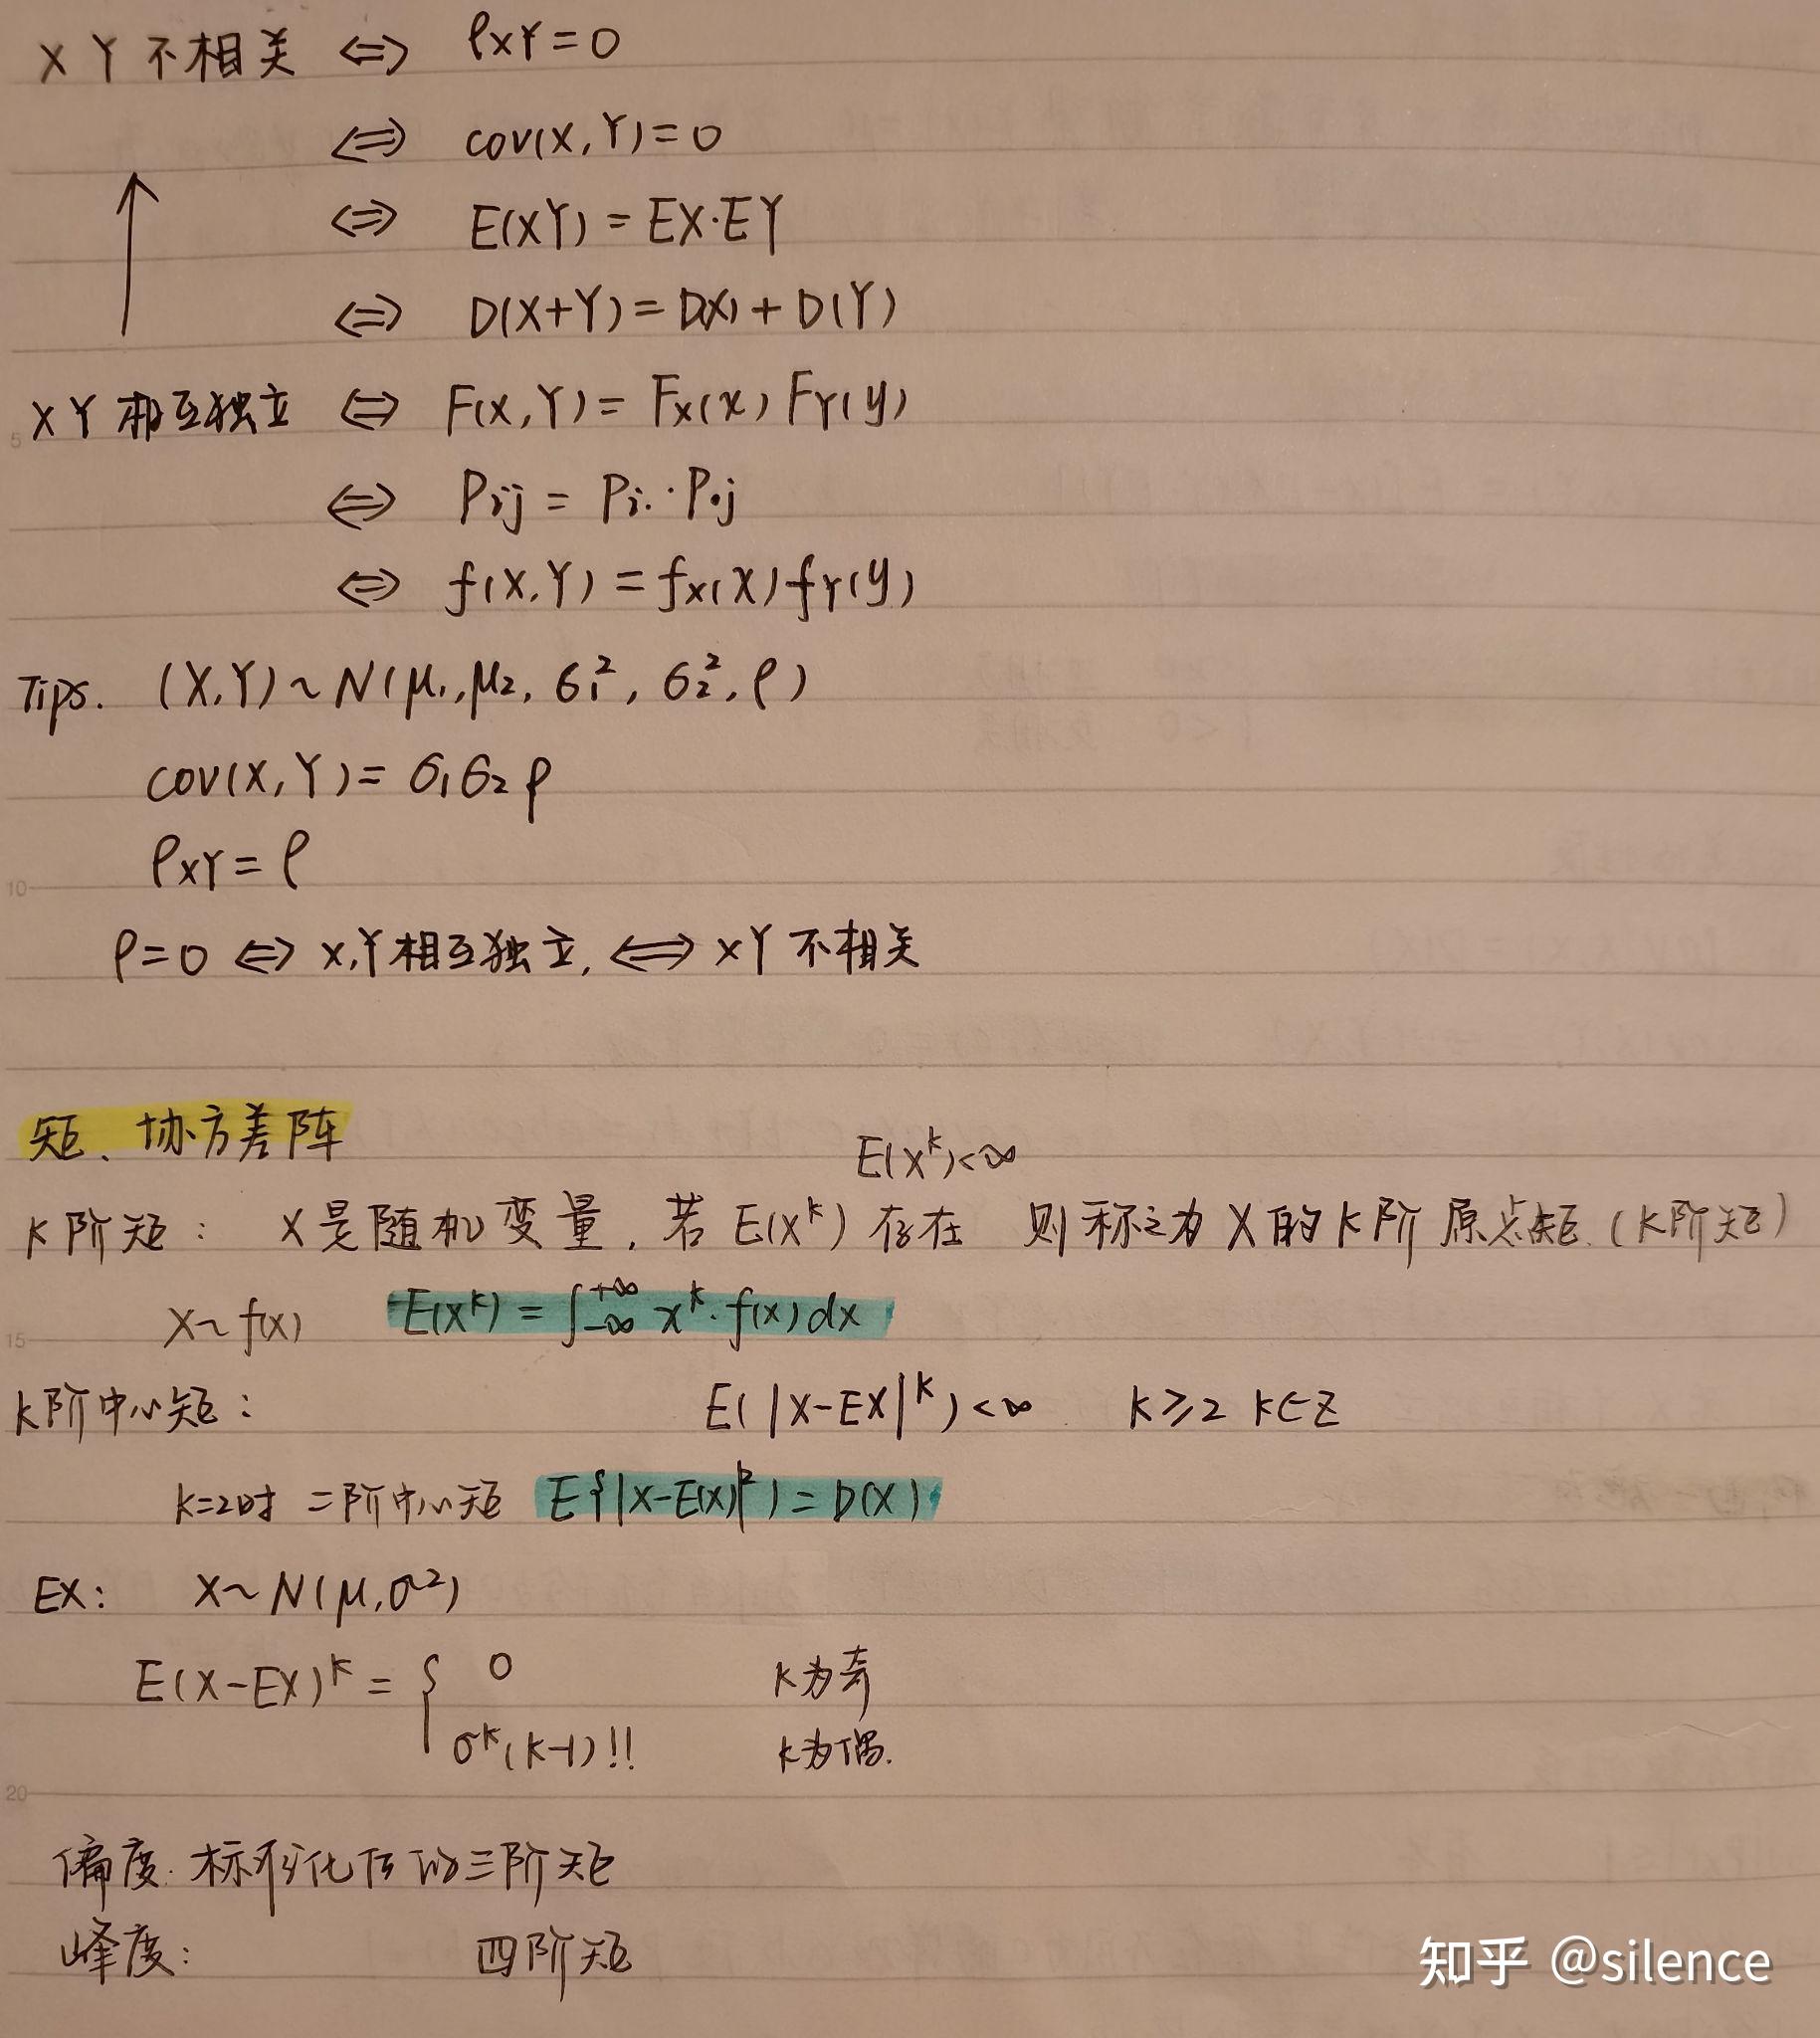 X Y 不相关 ⇔ ρXY=0
⇔ cov(X,Y)=0
⇔ E(XY)=EX·EY
⇔ D(X+Y)=D(X)+D(Y)
X Y 相互独立 ⇔ F(X,Y)=Fx(x)FY(y)
⇔ Pij=Pi.·P.j
⇔ f(X,Y)=fx(x)fY(y)
Tips. (X,Y)~N(μ1,μ2,σ1²,σ2²,ρ)
cov(X,Y)=σ1σ2ρ
ρXY=ρ
ρ=0 ⇔ X,Y相互独立, ⇔ XY 不相关
矩、协方差阵
E(X^k)<∞
K阶矩: X是随机变量, 若 E(X^k) 存在 则称之为 X 的 k阶 原点矩. (k阶矩)
X~f(x) E(X^k)=∫_{-∞}^{+∞} x^k·f(x)dx
k阶中心矩: E(|X-EX|^k)<∞ k≥2 k∈Z
k=2时 二阶中心矩 E{|X-E(X)|²)=D(X)
EX: X~N(μ,σ²)
E(X-EX)^k={ 0 k为奇
σ^k(k-1)!! k为偶.
偏度: 标准化后的三阶矩
峰度: 四阶矩
知乎 @silence